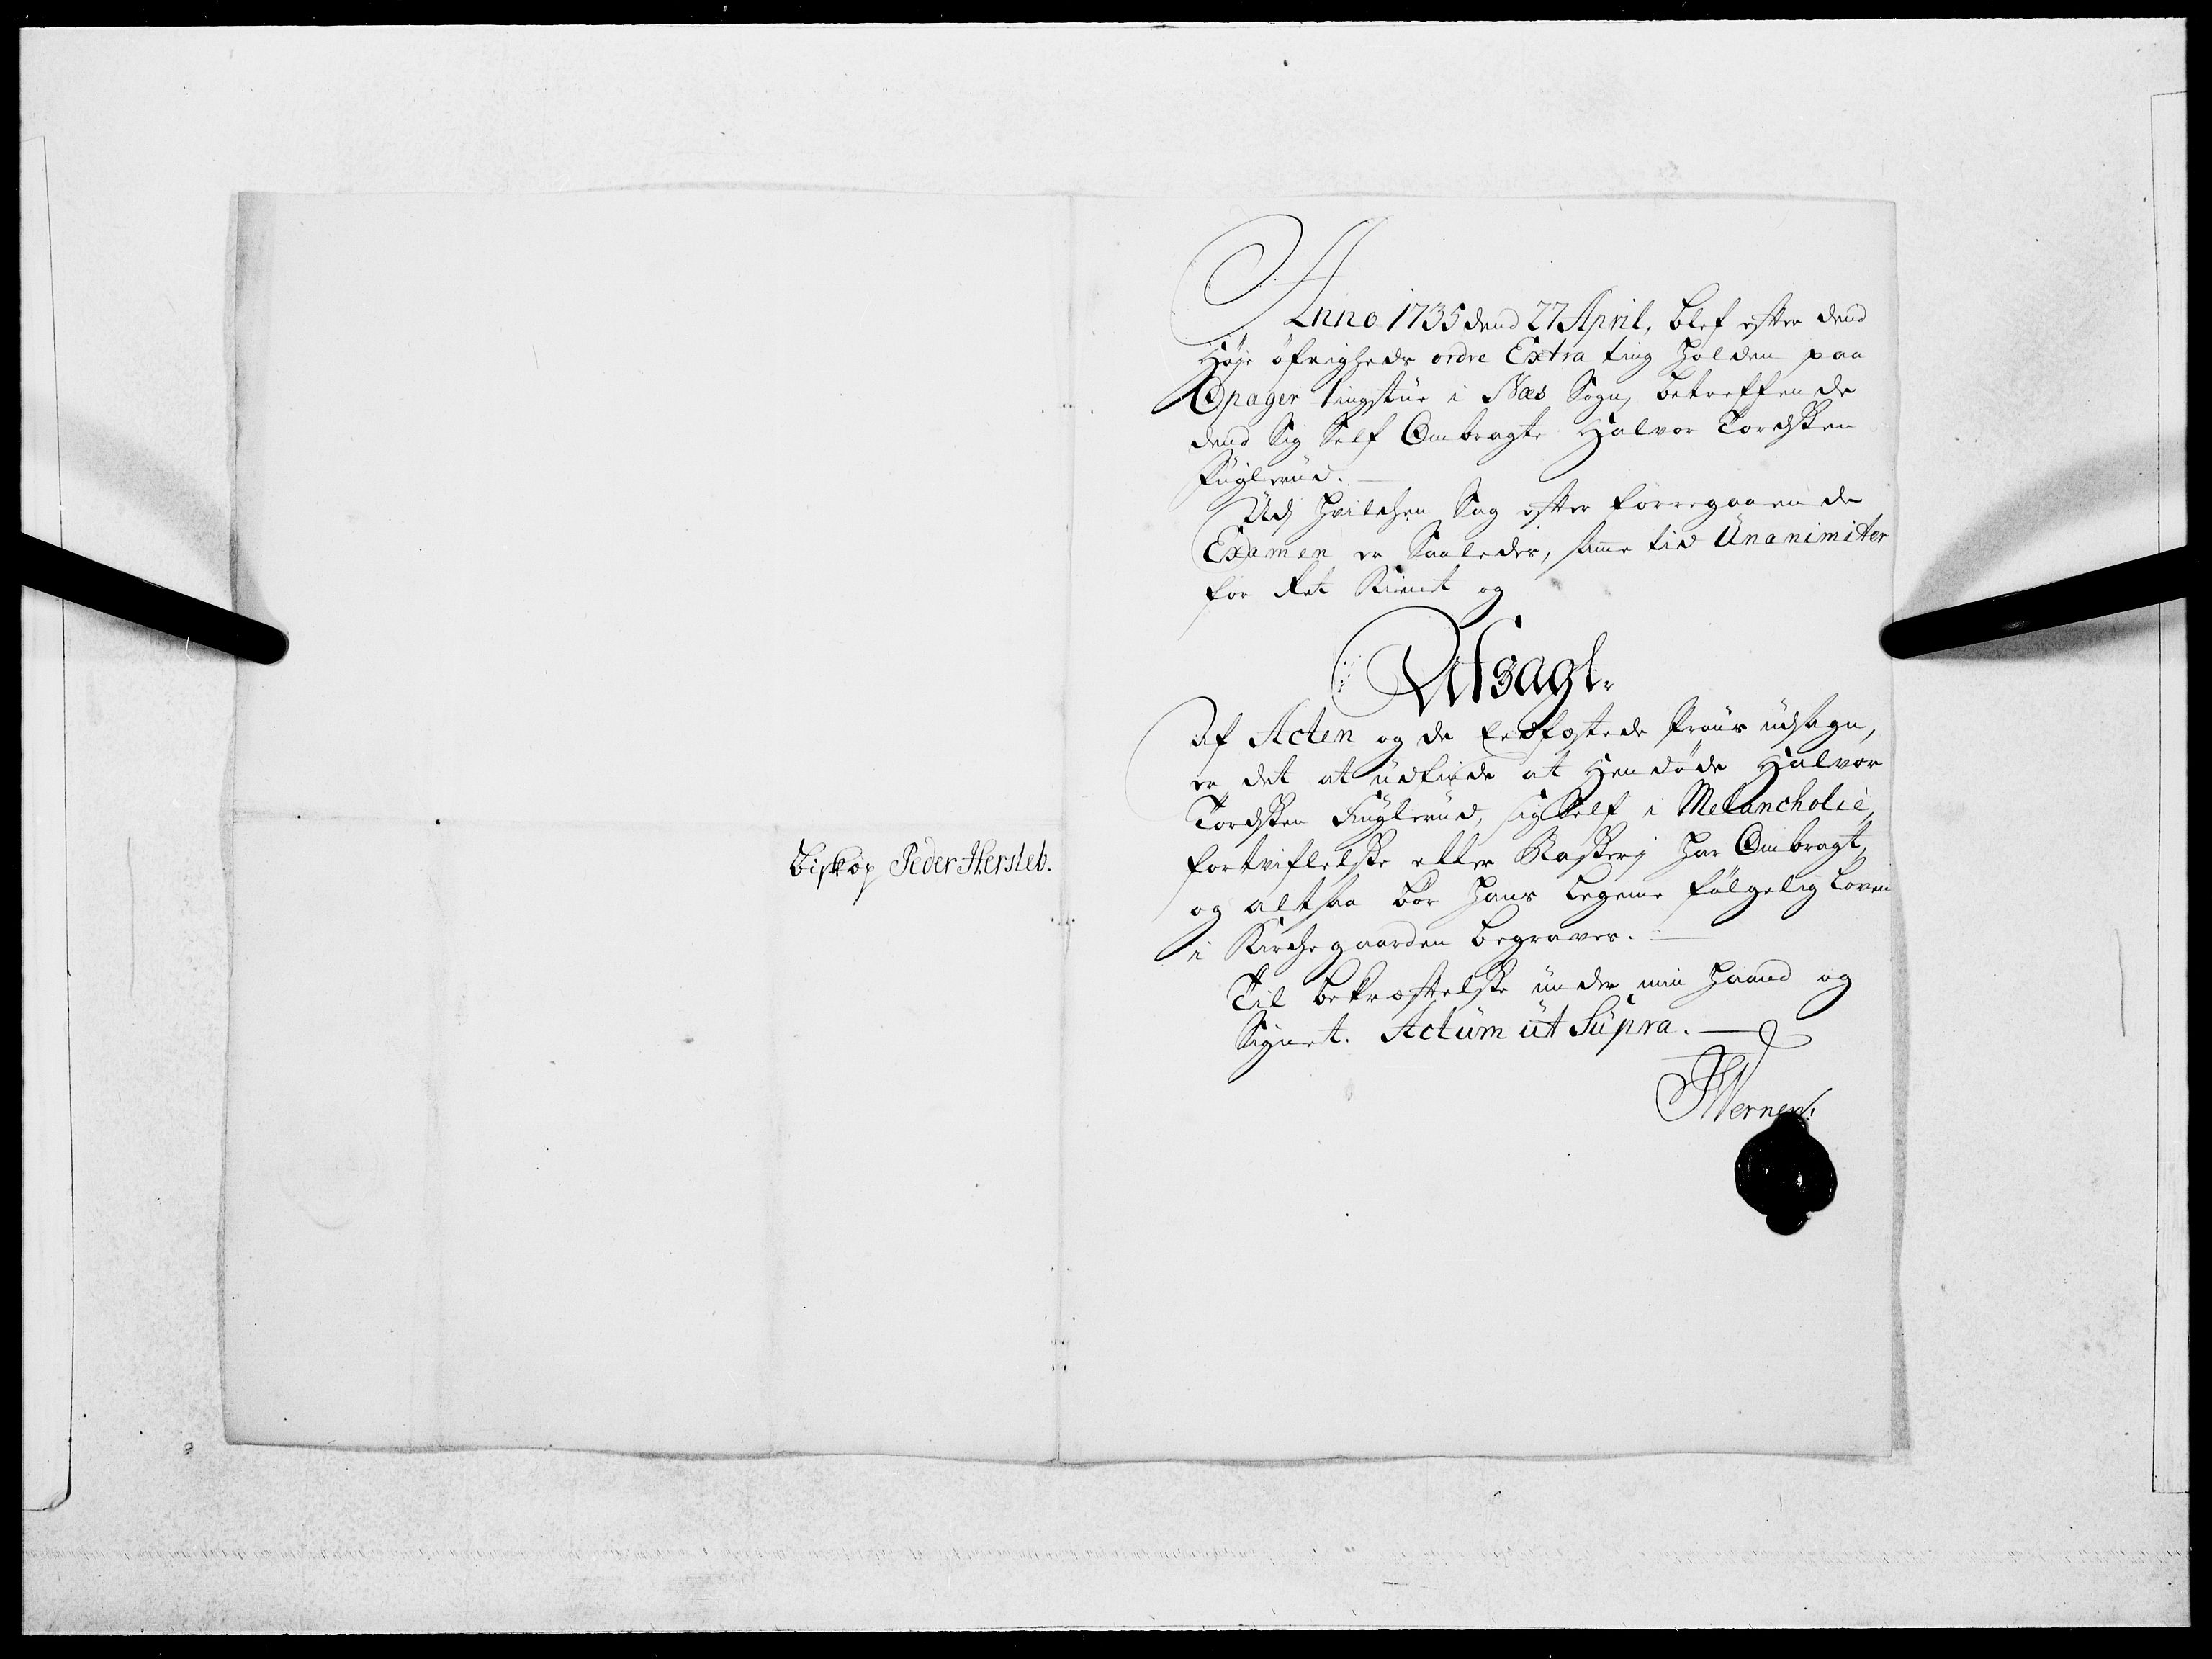 Biskop Peder Hersleb.
Anno 1735 dend 27 April, blef efter dend
Høje øfrigheds ordre Extra ting holden paa
Opager tingstue i Næs Sogn, betreffende
dend Sig Self Ombragte Halvor Tordsen
Fuglerud.
Udj hvilchen Sag efter forregaaende
Examen er Saaledes, samme tid Unanimiter
for Ret Kiendt og
Afsagt.
Af Acten og de Eedfæstede Prous udsagn,
er det at udfinde at Hendøde Halvor
Tordsen Fuglerud, sig Self i Melancholie,
fortviflelse eller Raserj har Ombragt,
og altsaa bør hans legeme følgelig Loven
i Kirchegaarden begraves.
Til bekræftelse under min haand og
Signet. Actum ut Supra.
Werner: